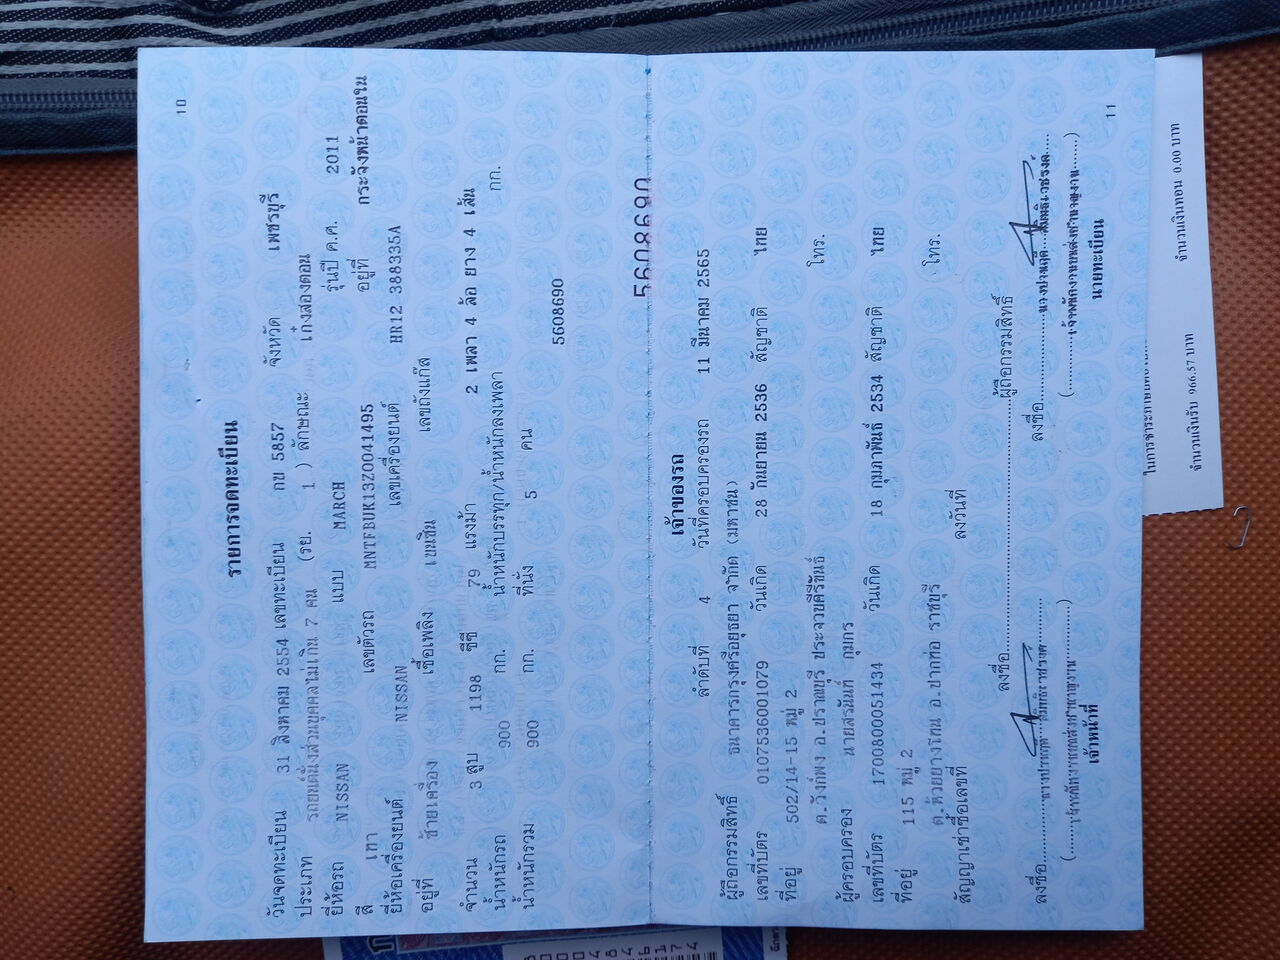 10
รายการจดทะเบียน
วันจดทะเบียน 31 สิงหาคม 2554 เลขทะเบียน กข 5857 จังหวัด เพชรบุรี
ประเภท รถยนต์นั่งส่วนบุคคลไม่เกิน 7 คน (รย. 1 ) ลักษณะ เก๋งสองตอน
ยี่ห้อรถ NISSAN แบบ MARCH รุ่นปี ค.ศ. 2011
สี เทา เลขตัวรถ MNTFBUK13Z0041495 อยู่ที่ กระจังหน้าตอนใน
ยี่ห้อเครื่องยนต์ NISSAN เลขเครื่องยนต์ HR12 388335A
อยู่ที่ ซ้ายเครื่อง เชื้อเพลิง เบนซิน เลขถังแก๊ส
จำนวน 3 สูบ 1198 ซีซี 79 แรงม้า 2 เพลา 4 ล้อ ยาง 4 เส้น
น้ำหนักรถ 900 กก. น้ำหนักบรรทุก/น้ำหนักลงเพลา กก.
น้ำหนักรวม 900 กก. ที่นั่ง 5 คน
5608690
5608690
เจ้าของรถ
ลำดับที่ 4 วันที่ครอบครองรถ 11 มีนาคม 2565
ผู้ถือกรรมสิทธิ์ ธนาคารกรุงศรีอยุธยา จำกัด (มหาชน)
เลขที่บัตร 0107536001079 วันเกิด 28 กันยายน 2536 สัญชาติ ไทย
ที่อยู่ 502/14-15 หมู่ 2
ต.วังก์พง อ.ปราณบุรี ประจวบคีรีขันธ์ โทร.
ผู้ครอบครอง นายสรนันท์ กุมกร
เลขที่บัตร 1700800051434 วันเกิด 18 กุมภาพันธ์ 2534 สัญชาติ ไทย
ที่อยู่ 115 หมู่ 2
ต.ห้วยยางโทน อ.ปากท่อ ราชบุรี โทร.
สัญญาเช่าซื้อเลขที่ ลงวันที่
ลงชื่อ ผู้ถือกรรมสิทธิ์
ลงชื่อ ลงชื่อ
เจ้าหน้าที่ นายทะเบียน
11
จำนวนเงินรับ 966.57 บาท จำนวนเงินทอน 0.00 บาท